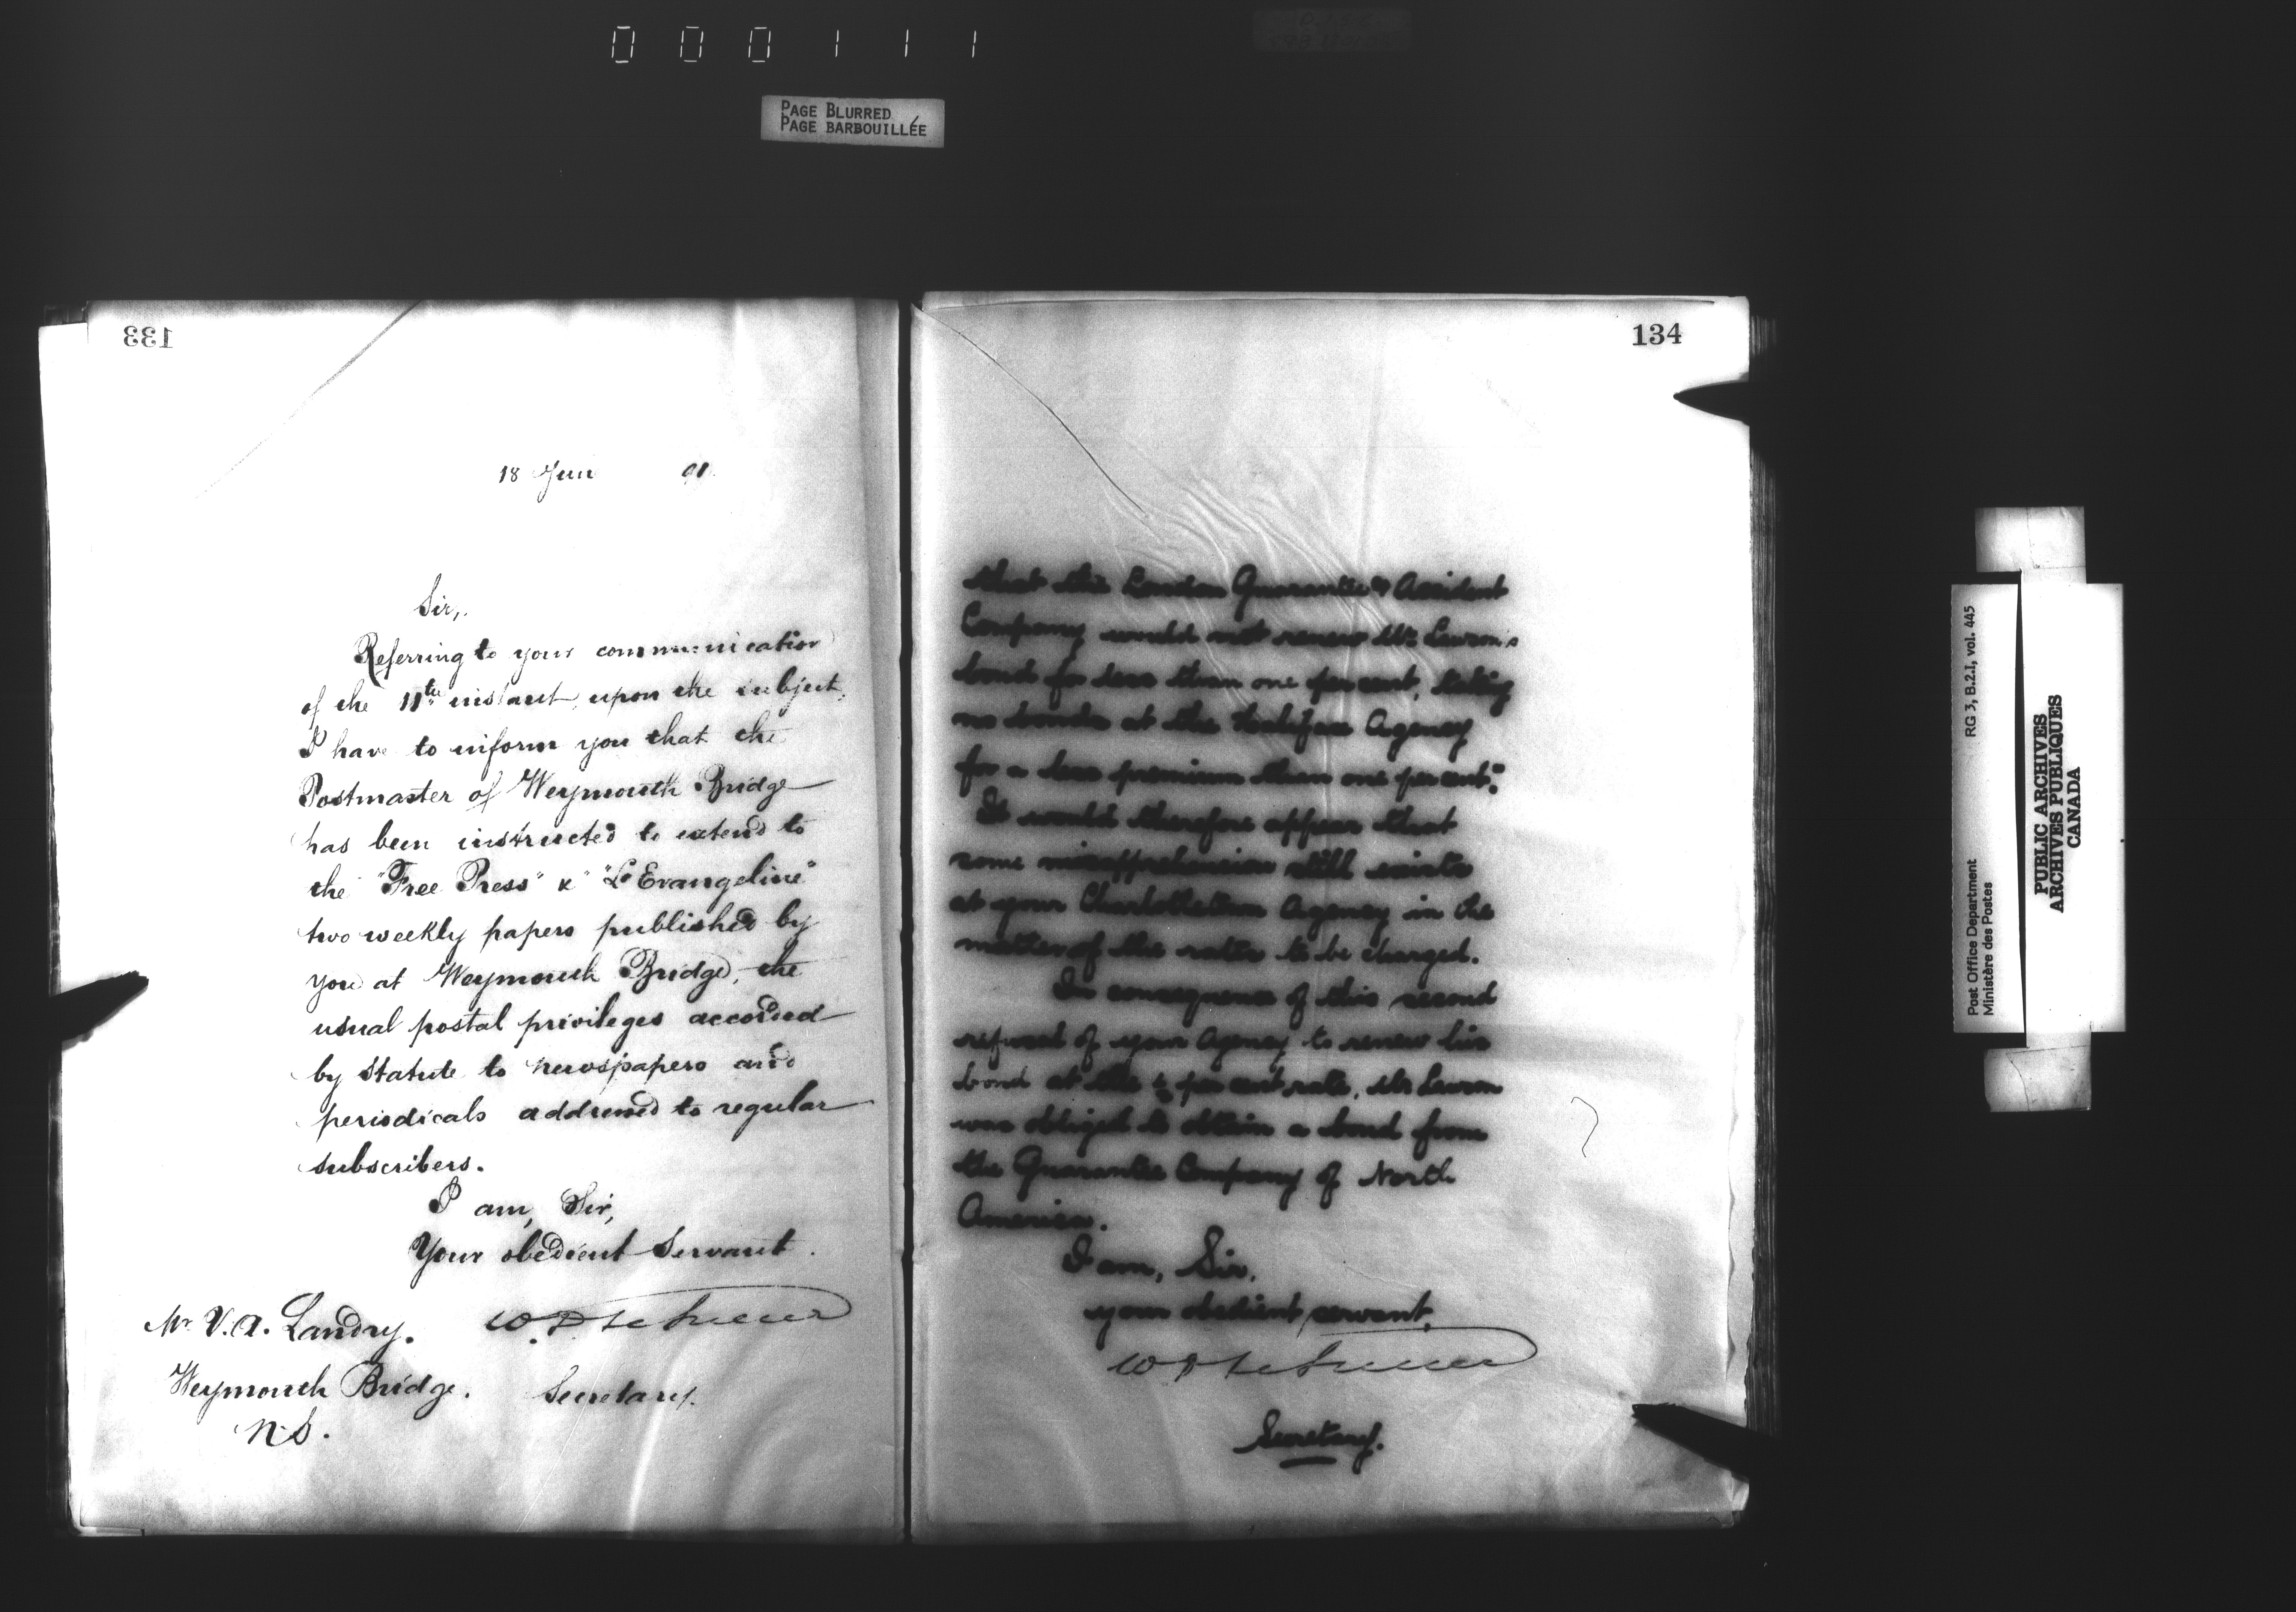 000111
PAGE BLURRED
PAGE BARBOUILLÉE
133
18 June 91.
Sir,
Referring to your communication
of the 11th instant, upon the subject,
I have to inform you that the
Postmaster of Weymouth Bridge
has been instructed to extend to
the "Free Press" & "L'Evangeline"
two weekly papers published by
you at Weymouth Bridge, the
usual postal privileges accorded
by Statute to newspapers and
periodicals addressed to regular
subscribers.
I am, Sir,
Your obedient Servant.
Mr. V. A. Landry.
Weymouth Bridge. Secretary.
N.S.
134
that the London Guarantee & Accident
Company would not renew Mr. Lawson's
bond for less than one per cent, taking
no bonds at the Halifax Agency
for a less premium than one per cent."
It would therefore appear that
some misapprehension still exists
at your Charlottetown Agency in the
matter of the rates to be charged.
In consequence of this second
refusal of your Agency to renew his
bond at the per cent rate, Mr. Lawson
was obliged to obtain a bond from
the Guarantee Company of North
America.
I am, Sir,
your obedient servant,
Secretary.
Post Office Department
Ministère des Postes
RG 3, B.2.I, vol. 445
PUBLIC ARCHIVES
ARCHIVES PUBLIQUES
CANADA